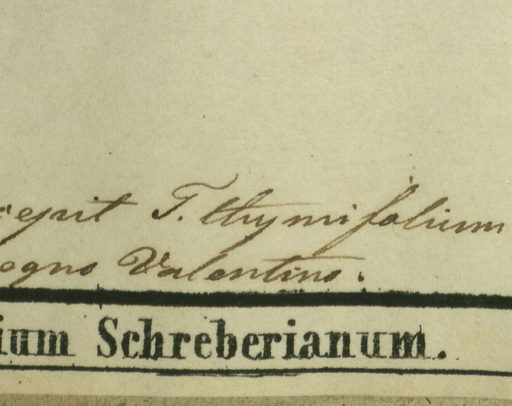 T. thymifolium
egno Valentino.
ium Schreberianum.